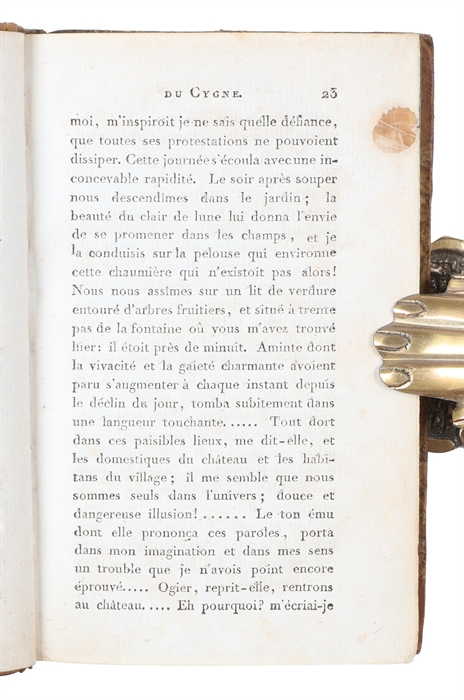 DU CYGNE. 23
moi, m'inspiroit je ne sais quelle défiance,
que toutes ses protestations ne pouvoient
dissiper. Cette journée s'écoula avec une in-
concevable rapidité. Le soir après souper
nous descendîmes dans le jardin; la
beauté du clair de lune lui donna l'envie
de se promener dans les champs, et je
la conduisis sur la pelouse qui environne
cette chaumière qui n'existoit pas alors!
Nous nous assîmes sur un lit de verdure
entouré d'arbres fruitiers, et situé à trente
pas de la fontaine où vous m'avez trouvé
hier: il étoit près de minuit. Aminte dont
la vivacité et la gaieté charmante avoient
paru s'augmenter à chaque instant depuis
le déclin du jour, tomba subitement dans
une langueur touchante..... Tout dort
dans ces paisibles lieux, me dit-elle, et
les domestiques du château et les habi-
tans du village; il me semble que nous
sommes seuls dans l'univers; douce et
dangereuse illusion!...... Le ton ému
dont elle prononça ces paroles, porta
dans mon imagination et dans mes sens
un trouble que je n'avois point encore
éprouvé..... Ogier, reprit-elle, rentrons
au château.... Eh pourquoi? m'écriai-je